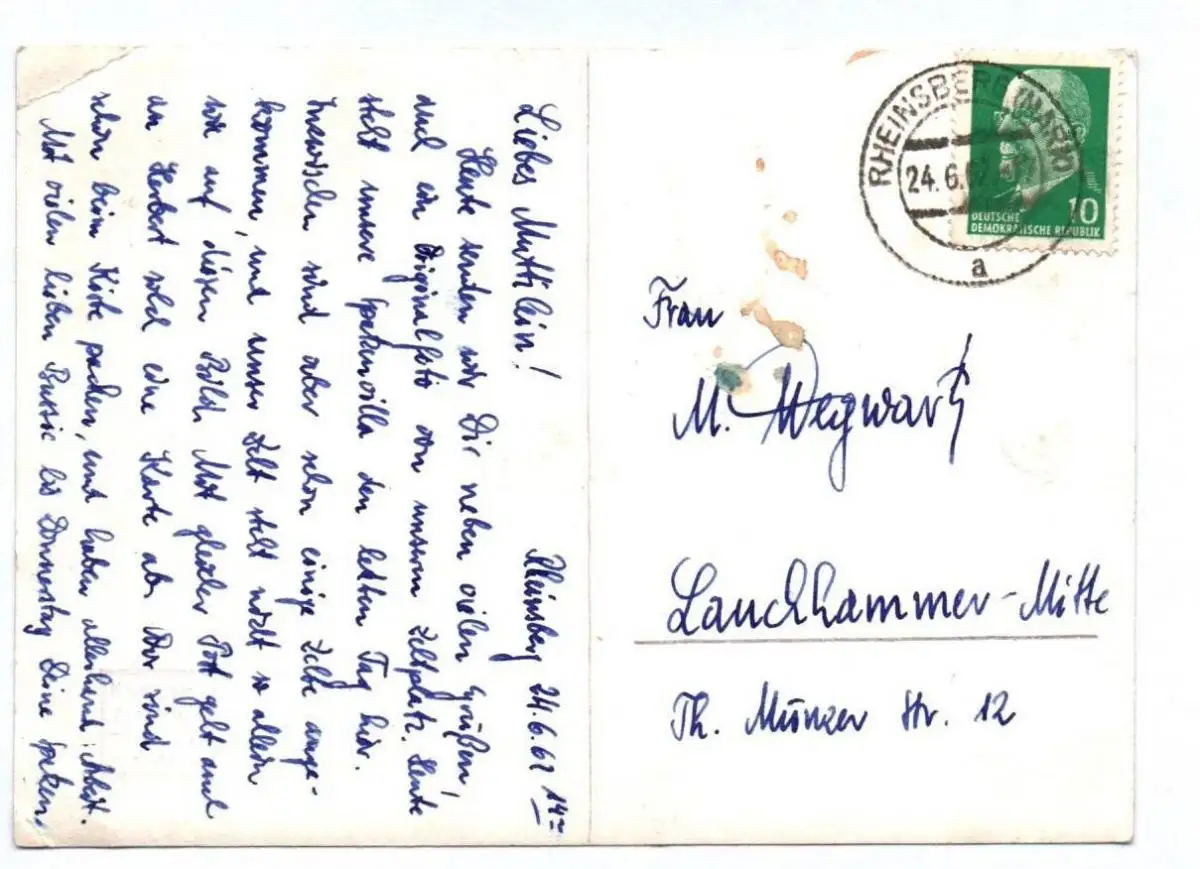 Rheinsberg 24.6.62 14⁰⁰
Liebes Muttilein!
Heute senden wir Dir neben vielen Grüßen,
auch ein Originalfoto von unserem Zeltplatz. Heute
steht unsere Spatzenvilla den letzten Tag hier.
Inzwischen sind aber schon einige Zelte ange-
kommen, und unser Zelt steht nicht so allein
wie auf diesem Bild. Mit gleicher Post geht auch
an Herbert solch eine Karte ab. Wir sind
schon beim Kiste packen, und haben allerhand Arbeit.
Mit vielen lieben Bussie bis Donnerstag Deine Spatzen
RHEINSBERG (MARK)
24.6.62
a
DEUTSCHE
DEMOKRATISCHE REPUBLIK
10
Frau
M. Wegwarth
Lauchhammer-Mitte
Th. Münzer Str. 12